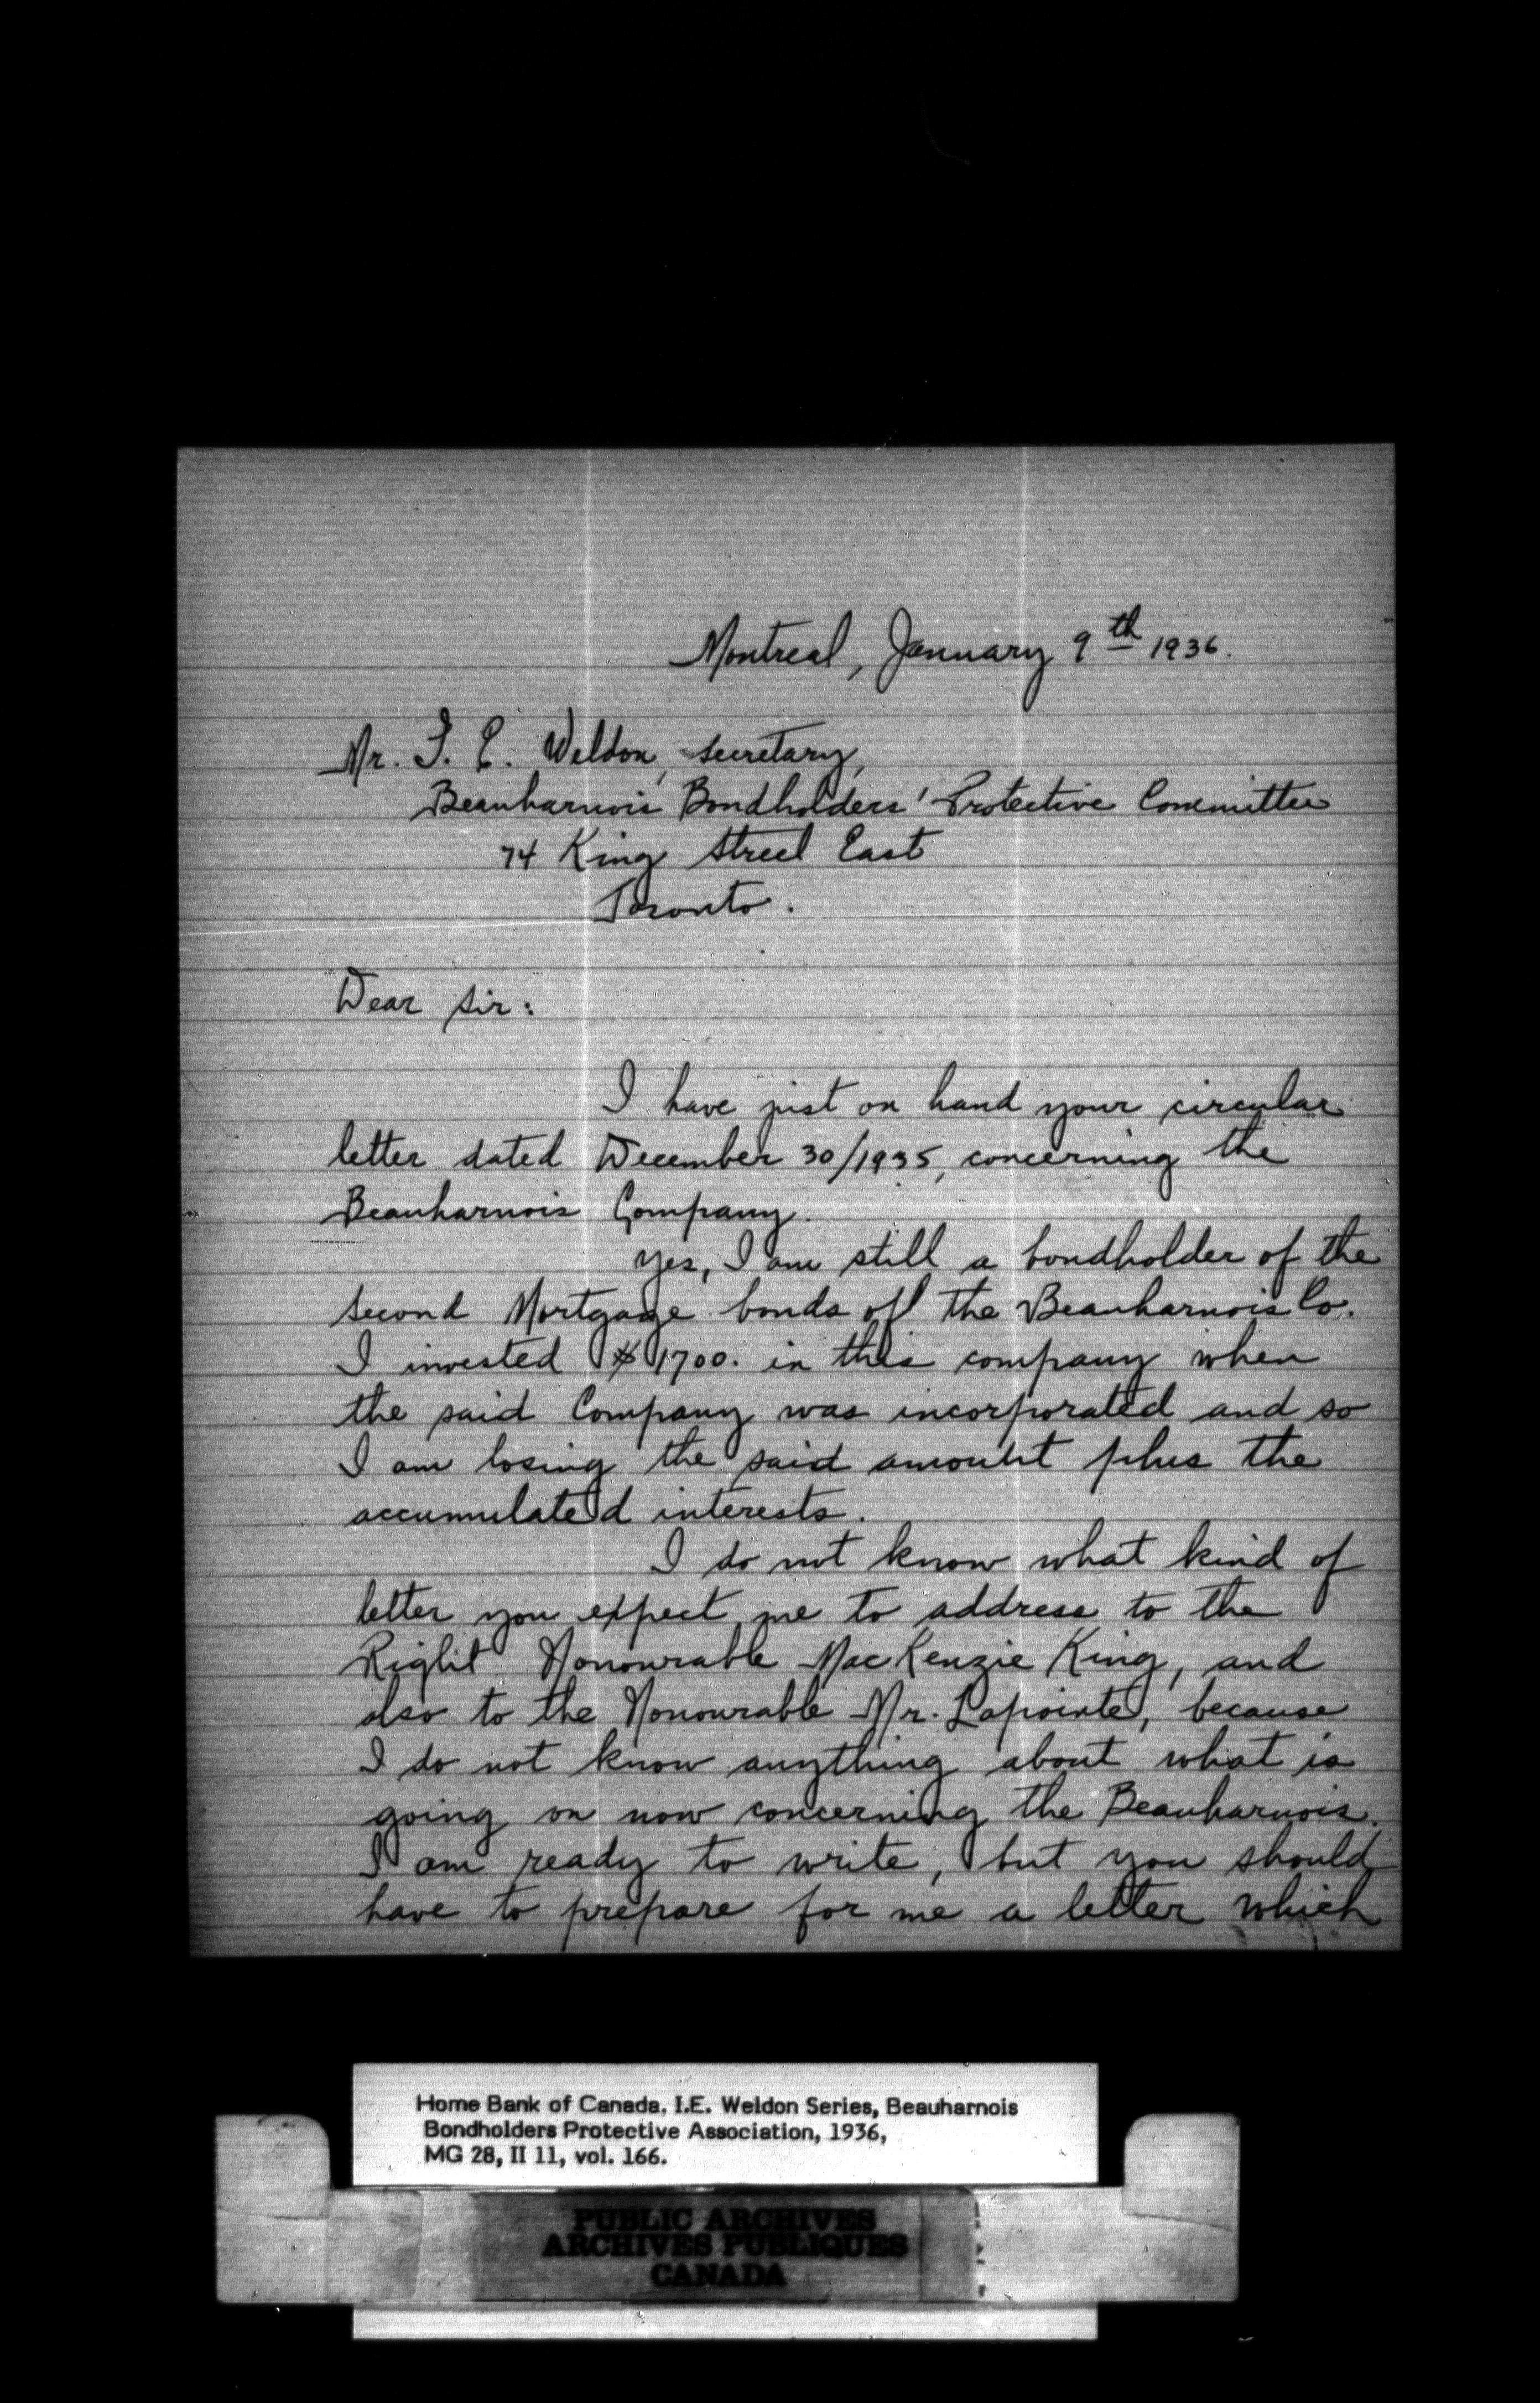 Montreal, January 9th 1936.
Mr. I. E. Weldon, secretary,
Beauharnois Bondholders' Protective Committee
74 King Street East
Toronto.
Dear Sir:
I have just on hand your circular
letter dated December 30/1935, concerning the
Beauharnois Company.
Yes, I am still a bondholder of the
second Mortgage bonds of the Beauharnois Co.
I invested $1700. in this company when
the said Company was incorporated and so
I am losing the said amount plus the
accumulated interests.
I do not know what kind of
letter you expect me to address to the
Right Honourable MacKenzie King, and
also to the Honourable Mr. Lapointe, because
I do not know anything about what is
going on now concerning the Beauharnois.
I am ready to write, but you should
have to prepare for me a letter which
Home Bank of Canada. I.E. Weldon Series, Beauharnois
Bondholders Protective Association, 1936,
MG 28, II 11, vol. 166.
PUBLIC ARCHIVES
ARCHIVES PUBLIQUES
CANADA